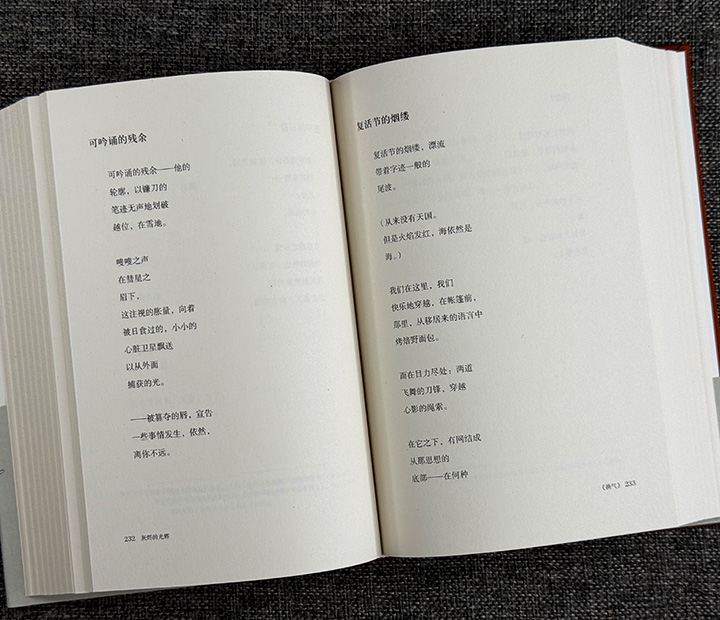 可吟诵的残余
可吟诵的残余——他的
轮廓，以镰刀的
笔迹无声地划破
越位，在雪地。
嗖嗖之声
在彗星之
眉下，
这注视的胀量，向着
被日食过的，小小的
心脏卫星飘送
以从外面
捕获的光。
——被篡夺的唇，宣告
一些事情发生，依然，
离你不远。
232 灰烬的光辉
复活节的烟缕
复活节的烟缕，漂流
带着字迹一般的
尾波。
（从来没有天国。
但是火焰发红，海依然是
海。）
我们在这里，我们
快乐地穿越，在帐篷前，
那里，从移居来的语言中
烤焙野面包。
而在目力尽处：两道
飞舞的刀锋，穿越
心影的绳索。
在它之下，有网结成
从那思想的
底部——在何种
《换气》 233